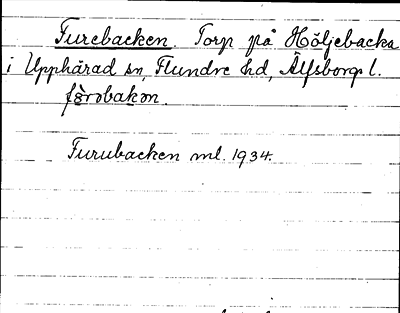 Furebacken Torp på Höljebacka
i Upphärad sn, Flundre hd, Älfsborgs l.
fø̀robakən.
Furubacken ml. 1934.